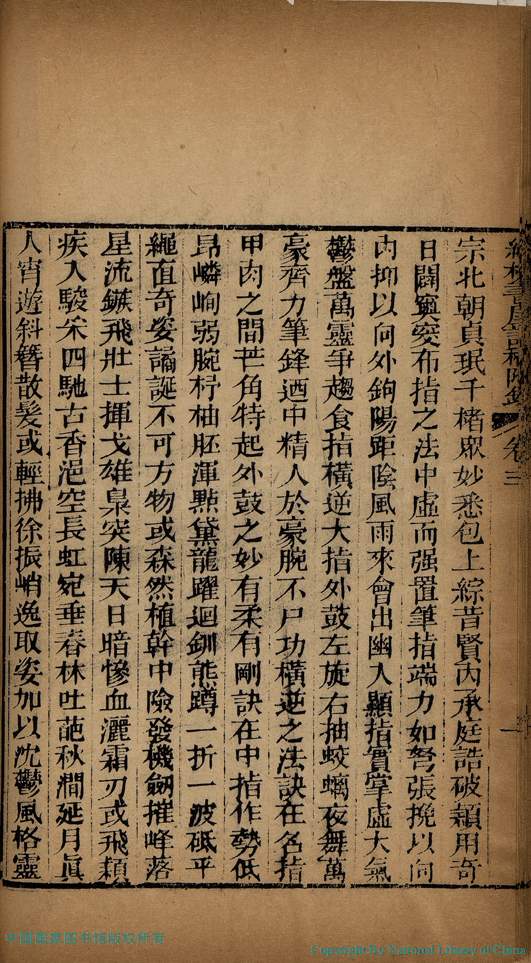 卷三
宗北朝貞珉千楮眾妙悉包上綜昔賢內承庭誥破穎用奇
日闢窔布指之法中虛而强置筆指端力如弩張挽以向
內抑以向外鉤陽距陰風雨來會出幽入顯指實掌虛大氣
鬱盤萬靈爭趨食指橫逆大指外鼓左旋右抽蛟螭夜舞萬
豪齊力筆鋒迺中精入於豪腕不尸功橫逆之法訣在名指
甲肉之間芒角特起外鼓之妙有柔有剛訣在中指作勢低
昂嶙峋弱腕杼柚胚渾點黛龍躍迴釧熊蹲一折一波砥平
繩直奇姿譎誕不可方物或森然植幹中險發機劒摧峰落
星流鏃飛壯士揮戈雄梟突陳天日暗慘血灑霜刃或飛穎
疾入駿柔四馳古香浥空長虹宛垂春林吐葩秋澗延月眞
人宵遊斜簪散髮或輕拂徐振峭逸取姿加以沈鬱風格靈
中國國家图书馆版权所有
Copyright by National Library of China